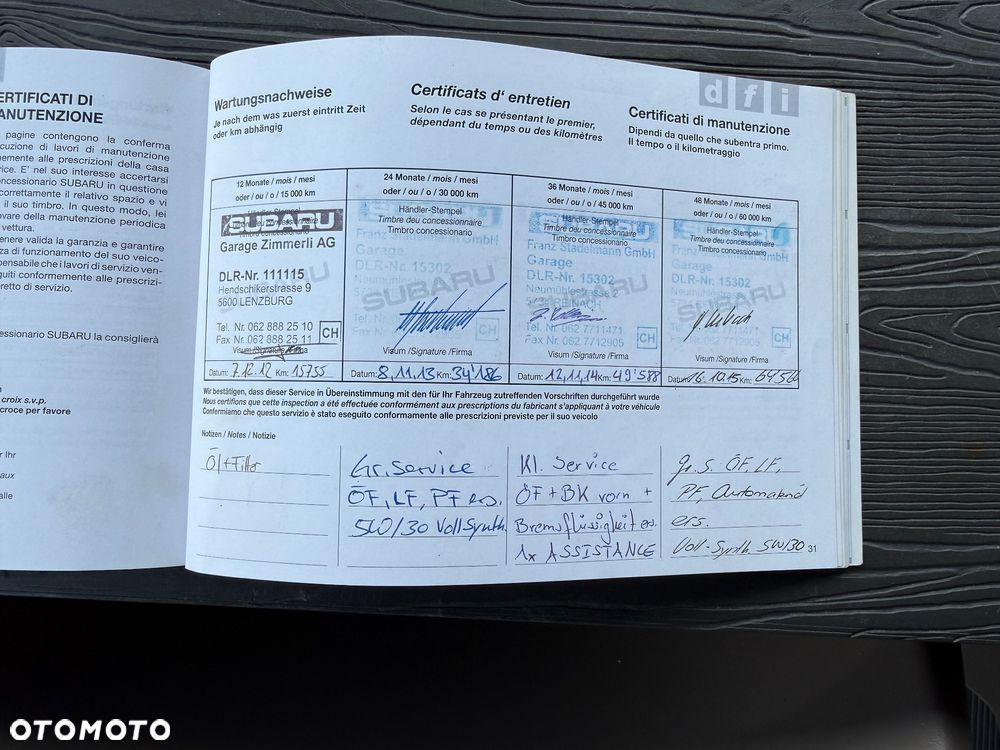 ERTIFICATI DI
ANUTENZIONE
pagine contengono la conferma
cuzione di lavori di manutenzione
emente alle prescrizioni della casa
rice. E' nel suo interesse accertarsi
oncessionario SUBARU in questione
correttamente il relativo spazio e vi
il suo timbro. In questo modo, lei
ovare della manutenzione periodica
vettura.
enere valida la garanzia e garantire
za di funzionamento del suo veico-
spensabile che i lavori di servizio ven-
eguiti conformemente alle prescrizi-
retto di servizio.
essionario SUBARU la consiglierà
croix s.v.p.
croce per favore
r Ihr
aux
alle
d f i
Wartungsnachweise
Je nach dem was zuerst eintritt Zeit
oder km abhängig
Certificats d' entretien
Selon le cas se présentant le premier,
dépendant du temps ou des kilomètres
Certificati di manutenzione
Dipendi da quello che subentra primo.
Il tempo o il kilometraggio
12 Monate / mois / mesi
oder / ou / o / 15 000 km
SUBARU
Timbro concessionario
Garage Zimmerli AG
DLR-Nr. 111115
Hendschikerstrasse 9
5600 LENZBURG
Tel. Nr. 062 888 25 10
Fax Nr. 062 888 25 11
CH
Visum /Signature /Firma
Datum: 7.12.12 Km: 15755
24 Monate / mois / mesi
oder / ou / o / 30 000 km
Händler-Stempel
Timbre du concessionnaire
Timbro concessionario
Franz Stadelmann GmbH
Garage
DLR-Nr. 15302
SUBARU
CH
Visum /Signature /Firma
Datum: 8.11.13 Km: 34'186
36 Monate / mois / mesi
oder / ou / o / 45 000 km
Händler-Stempel
Timbre du concessionnaire
Timbro concessionario
Franz Stadelmann GmbH
Garage
DLR-Nr. 15302
Neumühlestrasse 2
REINACH
Tel. Nr. 062 7711471
Fax Nr. 062 7712905
CH
Visum /Signature /Firma
Datum: 12.11.14 Km: 49'588
48 Monate / mois / mesi
oder / ou / o / 60 000 km
Händler-Stempel
Timbre du concessionnaire
Timbro concessionario
Franz Stadelmann GmbH
Garage
DLR-Nr. 15302
SUBARU
CH
Visum /Signature /Firma
Datum: 16.10.15 Km:
Wir bestätigen, dass dieser Service in Übereinstimmung mit den für Ihr Fahrzeug zutreffenden Vorschriften durchgeführt wurde
Nous certifions que cette inspection a été effectuée conformément aux prescriptions du fabricant s'appliquant à votre véhicule
Confermiamo che questo servizio è stato eseguito conformamente alle prescrizioni previste per il suo veicolo
Notizen / Notes / Notizie
Öl + Filter
Gr. Service
ÖF, LF, PF ers.
5W/30 VollSynth.
Kl. Service
ÖF + BK vorn +
Bremsflüssigkeit ers.
1x ASSISTANCE
gr. S. ÖF, LF,
PF, Automatenöl
ers.
Voll-Synth. 5W/30
31
OTOMOTO